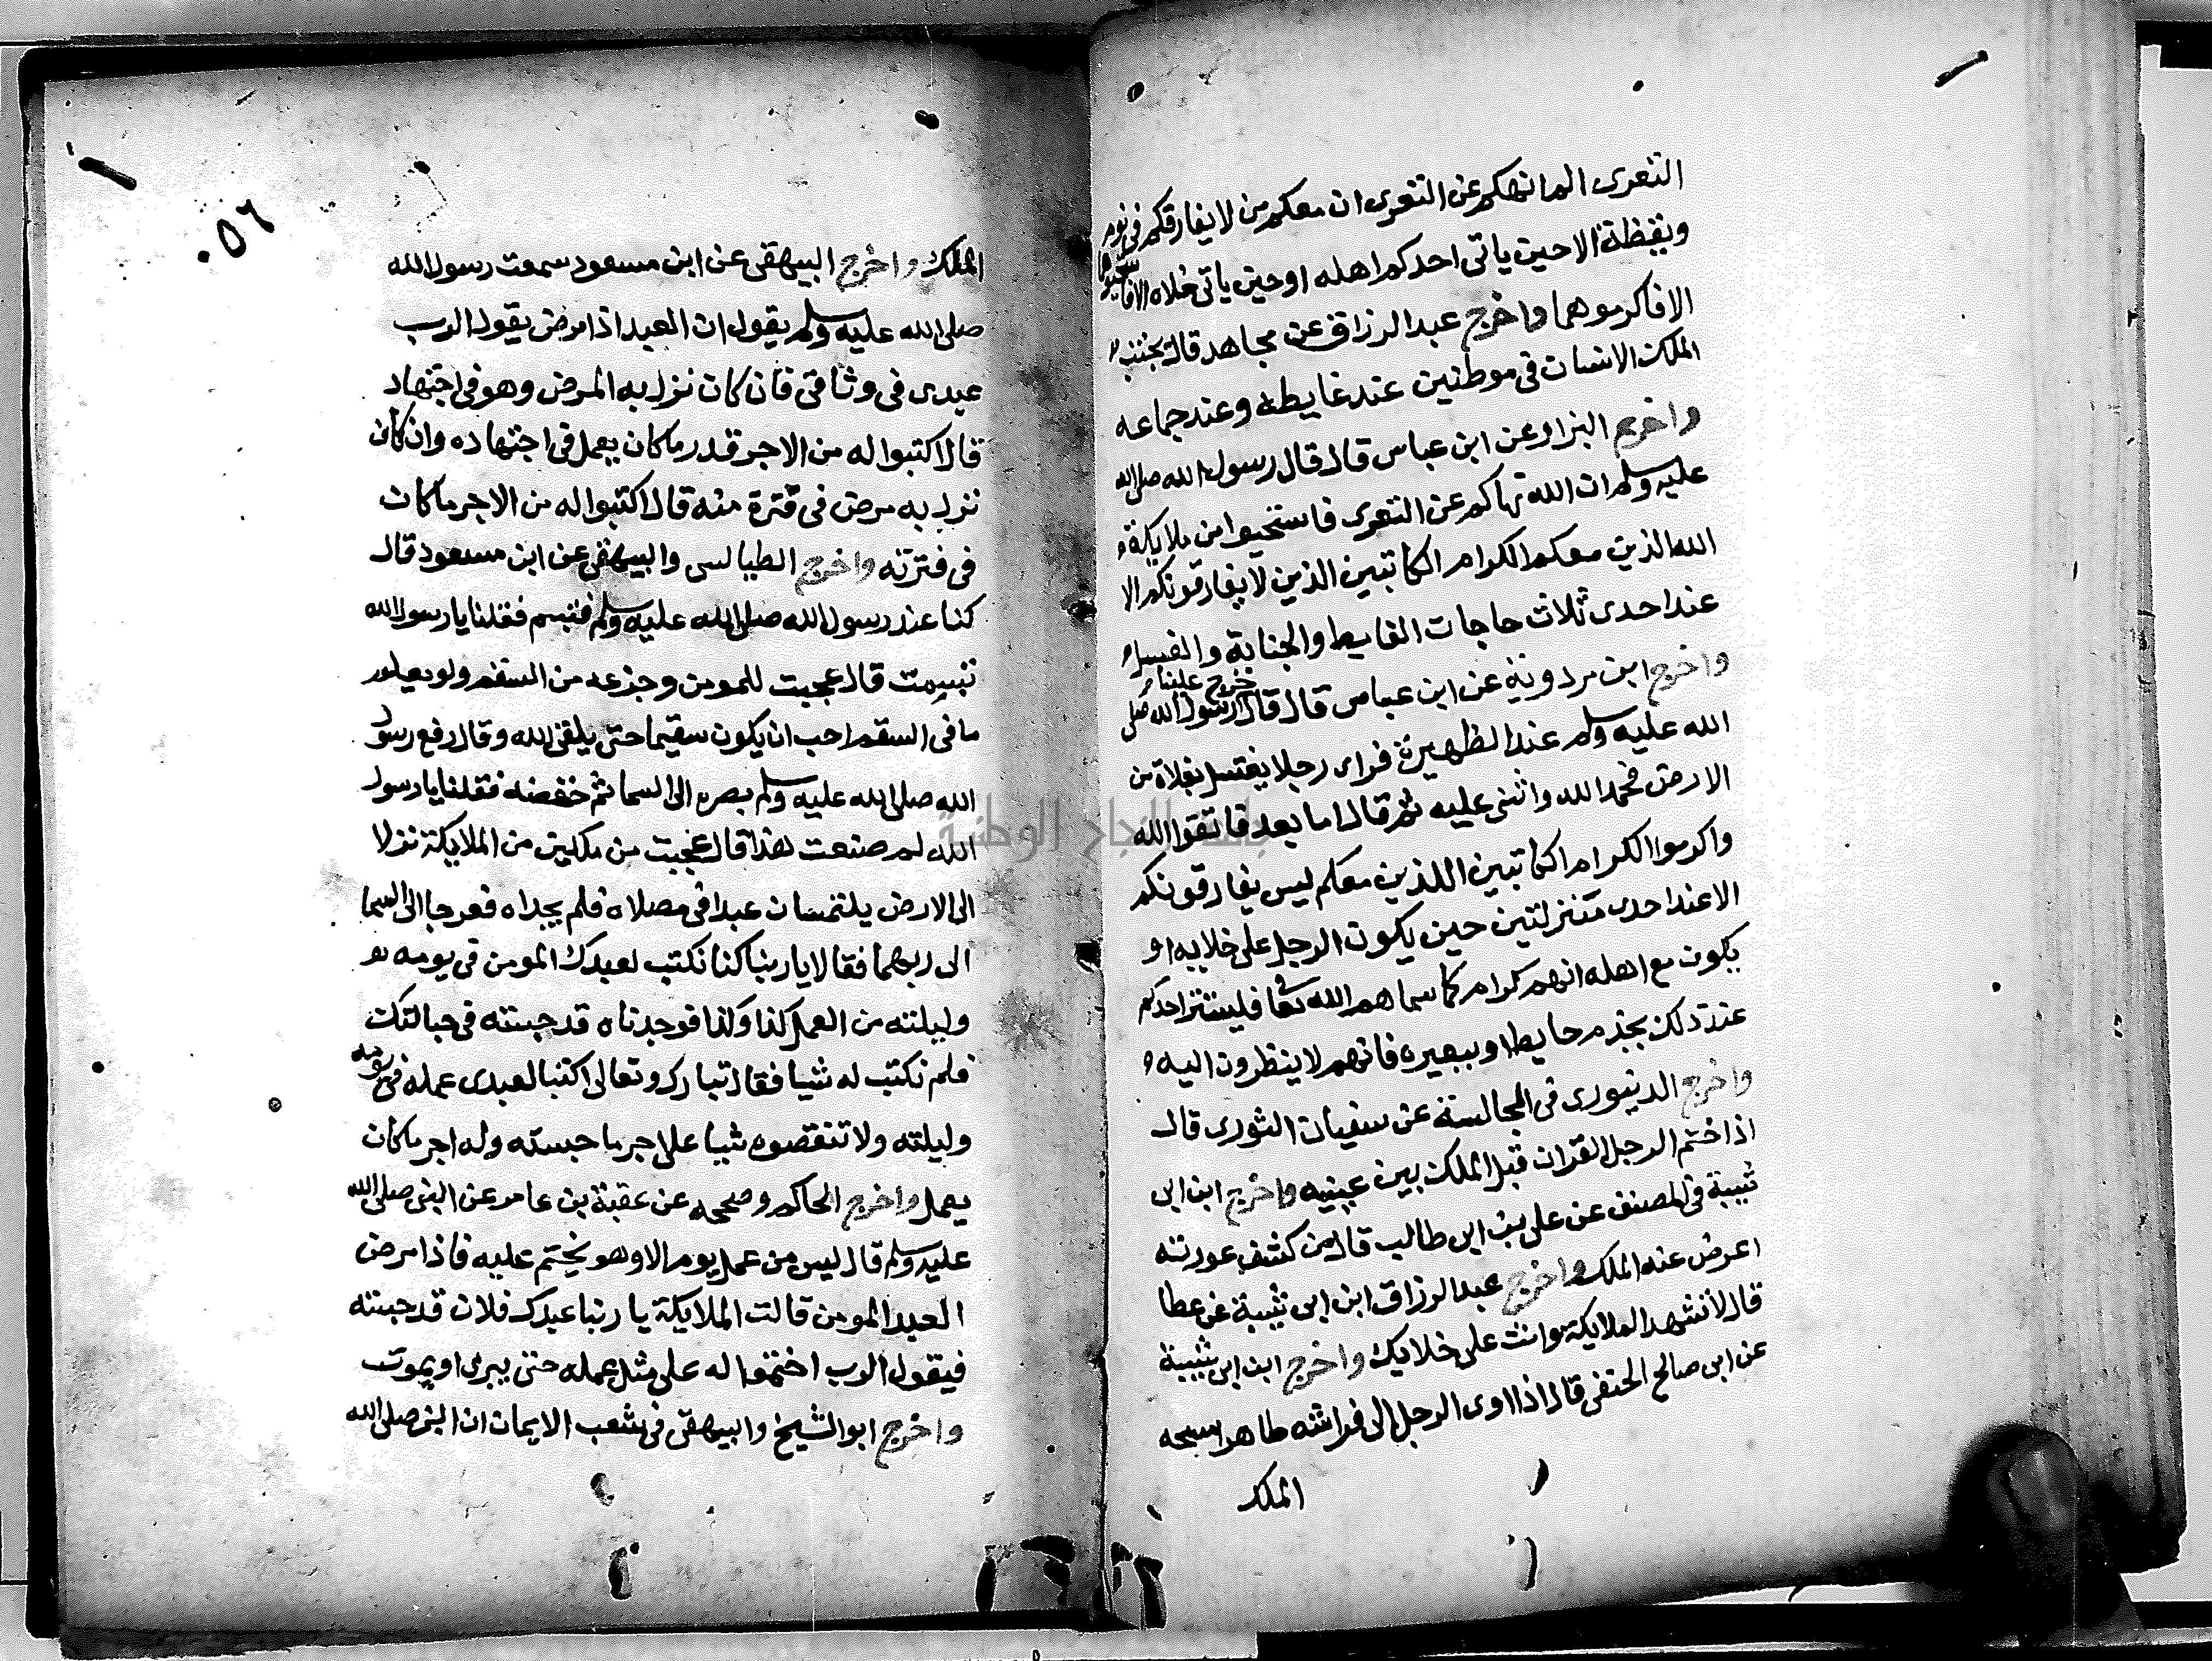 التعرى الم انهكم عن التعرى ان معكم من لا يفارقكم فى نوم
ويقظة الا حين ياتى احدكم اهله او حين ياتى خلاه الا فاستحيوا
الا فاكرموهما واخرج عبد الرزاق عن مجاهد قال يجتنب
الملك الانسان فى موطنين عند غايطه وعند جماعه
واخرج البزار وعن ابن عباس قال قال رسول الله صلى الله
عليه وسلم ان الله نهاكم عن التعرى فاستحيوا من ملايكة
الله الذين معكم الكرام الكاتبين الذين لا يفارقونكم الا
عند احدى ثلاث حاجات الغايط والجنابة والغسل
واخرج ابن مردوية عن ابن عباس قال قال رسول الله صلى
خرج علينا
الله عليه وسلم عند الظهيرة فراى رجلا يغتسل بفلاة من
الارض فحمد الله واثنى عليه ثم قال اما بعد فاتقوا الله
واكرموا الكرام الكاتبين اللذين معكم ليس يفارقونكم
الا عند احدى منزلتين حين يكون الرجل على خلايه او
يكون مع اهله انهم كرام كما سماهم الله تعا فليستتر احدكم
عند ذلك بجذم حايط او ببعيره فانهم لا ينظرون اليه
واخرج الدينورى فى المجالسة عن سفيان الثورى قال
اذا ختم الرجل القران قبل الملك بين عينيه واخرج ابن ابى
شيبة فى المصنف عن على بن ابى طالب قال من كشف عورته
اعرض عنه الملك واخرج عبد الرزاق ابن ابى شيبة عن عطا
قال لا تشهد الملايكة وانت على خلايك واخرج ابن ابى شيبة
عن ابى صالح الحنفى قال اذا اوى الرجل الى فراشه طاهرا مسحه
الملك
٠٥٦
الملك واخرج البيهقى عن ابن مسعود سمعت رسول الله
صلى الله عليه وسلم يقول ان العبد اذا مرض يقول الرب
عبدى فى وثاقى فان كان نزل به المرض وهو فى اجتهاد
قال اكتبوا له من الاجر قدر ما كان يعمل فى اجتهاده وان كان
نزل به مرض فى فترة منه قال اكتبوا له من الاجر ما كان
فى فترته واخرج الطيالسى والبيهقى عن ابن مسعود قال
كنا عند رسول الله صلى الله عليه وسلم فتبسم فقلنا يا رسول الله
تبسمت قال عجبت للمومن وجزعه من السقم ولو يعلم
ما فى السقم احب ان يكون سقيما حتى يلقى الله وقال رفع رسول
الله صلى الله عليه وسلم بصره الى السما ثم خفضه فقلنا يا رسول
الله لم صنعت هذا قال عجبت من ملكين من الملايكة نزلا
الى الارض يلتمسان عبدا فى مصلاه فلم يجداه فعرجا الى السما
الى ربهما فقالا يا ربنا كنا نكتب لعبدك المومن فى يومه
وليلته من العمل كذا وكذا فوجدناه قد حبسته فى حبالتك
فلم نكتب له شيا فقال تبارك وتعالى اكتبا لعبدى عمله فى يومه
وليلته ولا تنقصوه شيا على اجر ما حبسته وله اجر ما كان
يعمل واخرج الحاكم وصححه عن عقبة بن عامر عن النبى صلى الله
عليه وسلم قال ليس من عمل يوم الا وهو يختم عليه فاذا مرض
العبد المومن قالت الملايكة يا ربنا عبدك فلان قد حبسته
فيقول الرب اختموا له على مثل عمله حتى يبرى او يموت
واخرج ابو الشيخ والبيهقى فى شعب الايمان ان النبى صلى الله
جامعة النجاح الوطنية